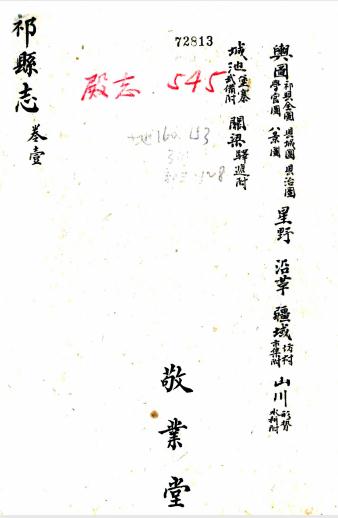 輿圖 祁縣全圖 縣城圖 縣治圖 學宮圖 八景圖 星野 沿革 疆域 坊村 市集附 山川 形勢 水利附
城池 堡寨 武備附 關梁 驛遞附
72813
殿志 545
敬業堂
祁縣志 卷壹